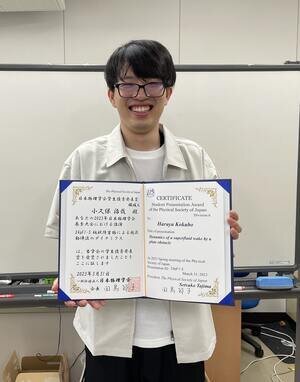 The Physical Society of Japan
日本物理学会学生優秀発表賞
領域6
小久保 治哉 殿
あなたの2023年日本物理学会
春季大会における講演
は、本学会の学生優秀発表
賞を授賞されましたことを
ここに証します
2023年3月31日
一般社団法人 日本物理学会
会長 田島 節子
CERTIFICATE
Student Presentation Award
of the Physical Society of Japan
Division 6
To
Haruya Kokubo
Title of presentation:
Dynamics of a superfluid wake by a
plate obstacle
in 2023 Spring meeting of the Physical
Society of Japan.
March 31, 2023
President, The Physical Society of Japan
Setsuko Tajima
田島 節子